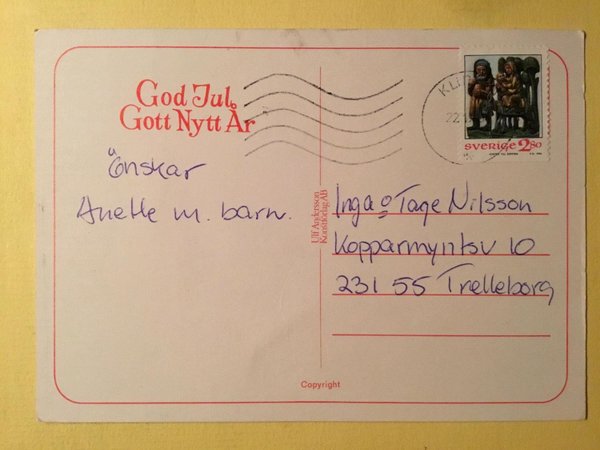 God Jul
Gott Nytt År
Önskar
Anette m. barn.
Ulf Andersson
Konstförlag AB
SVERIGE 2.80
Inga o Tage Nilsson
Kopparmyntsv 10
231 55 Trelleborg
Copyright